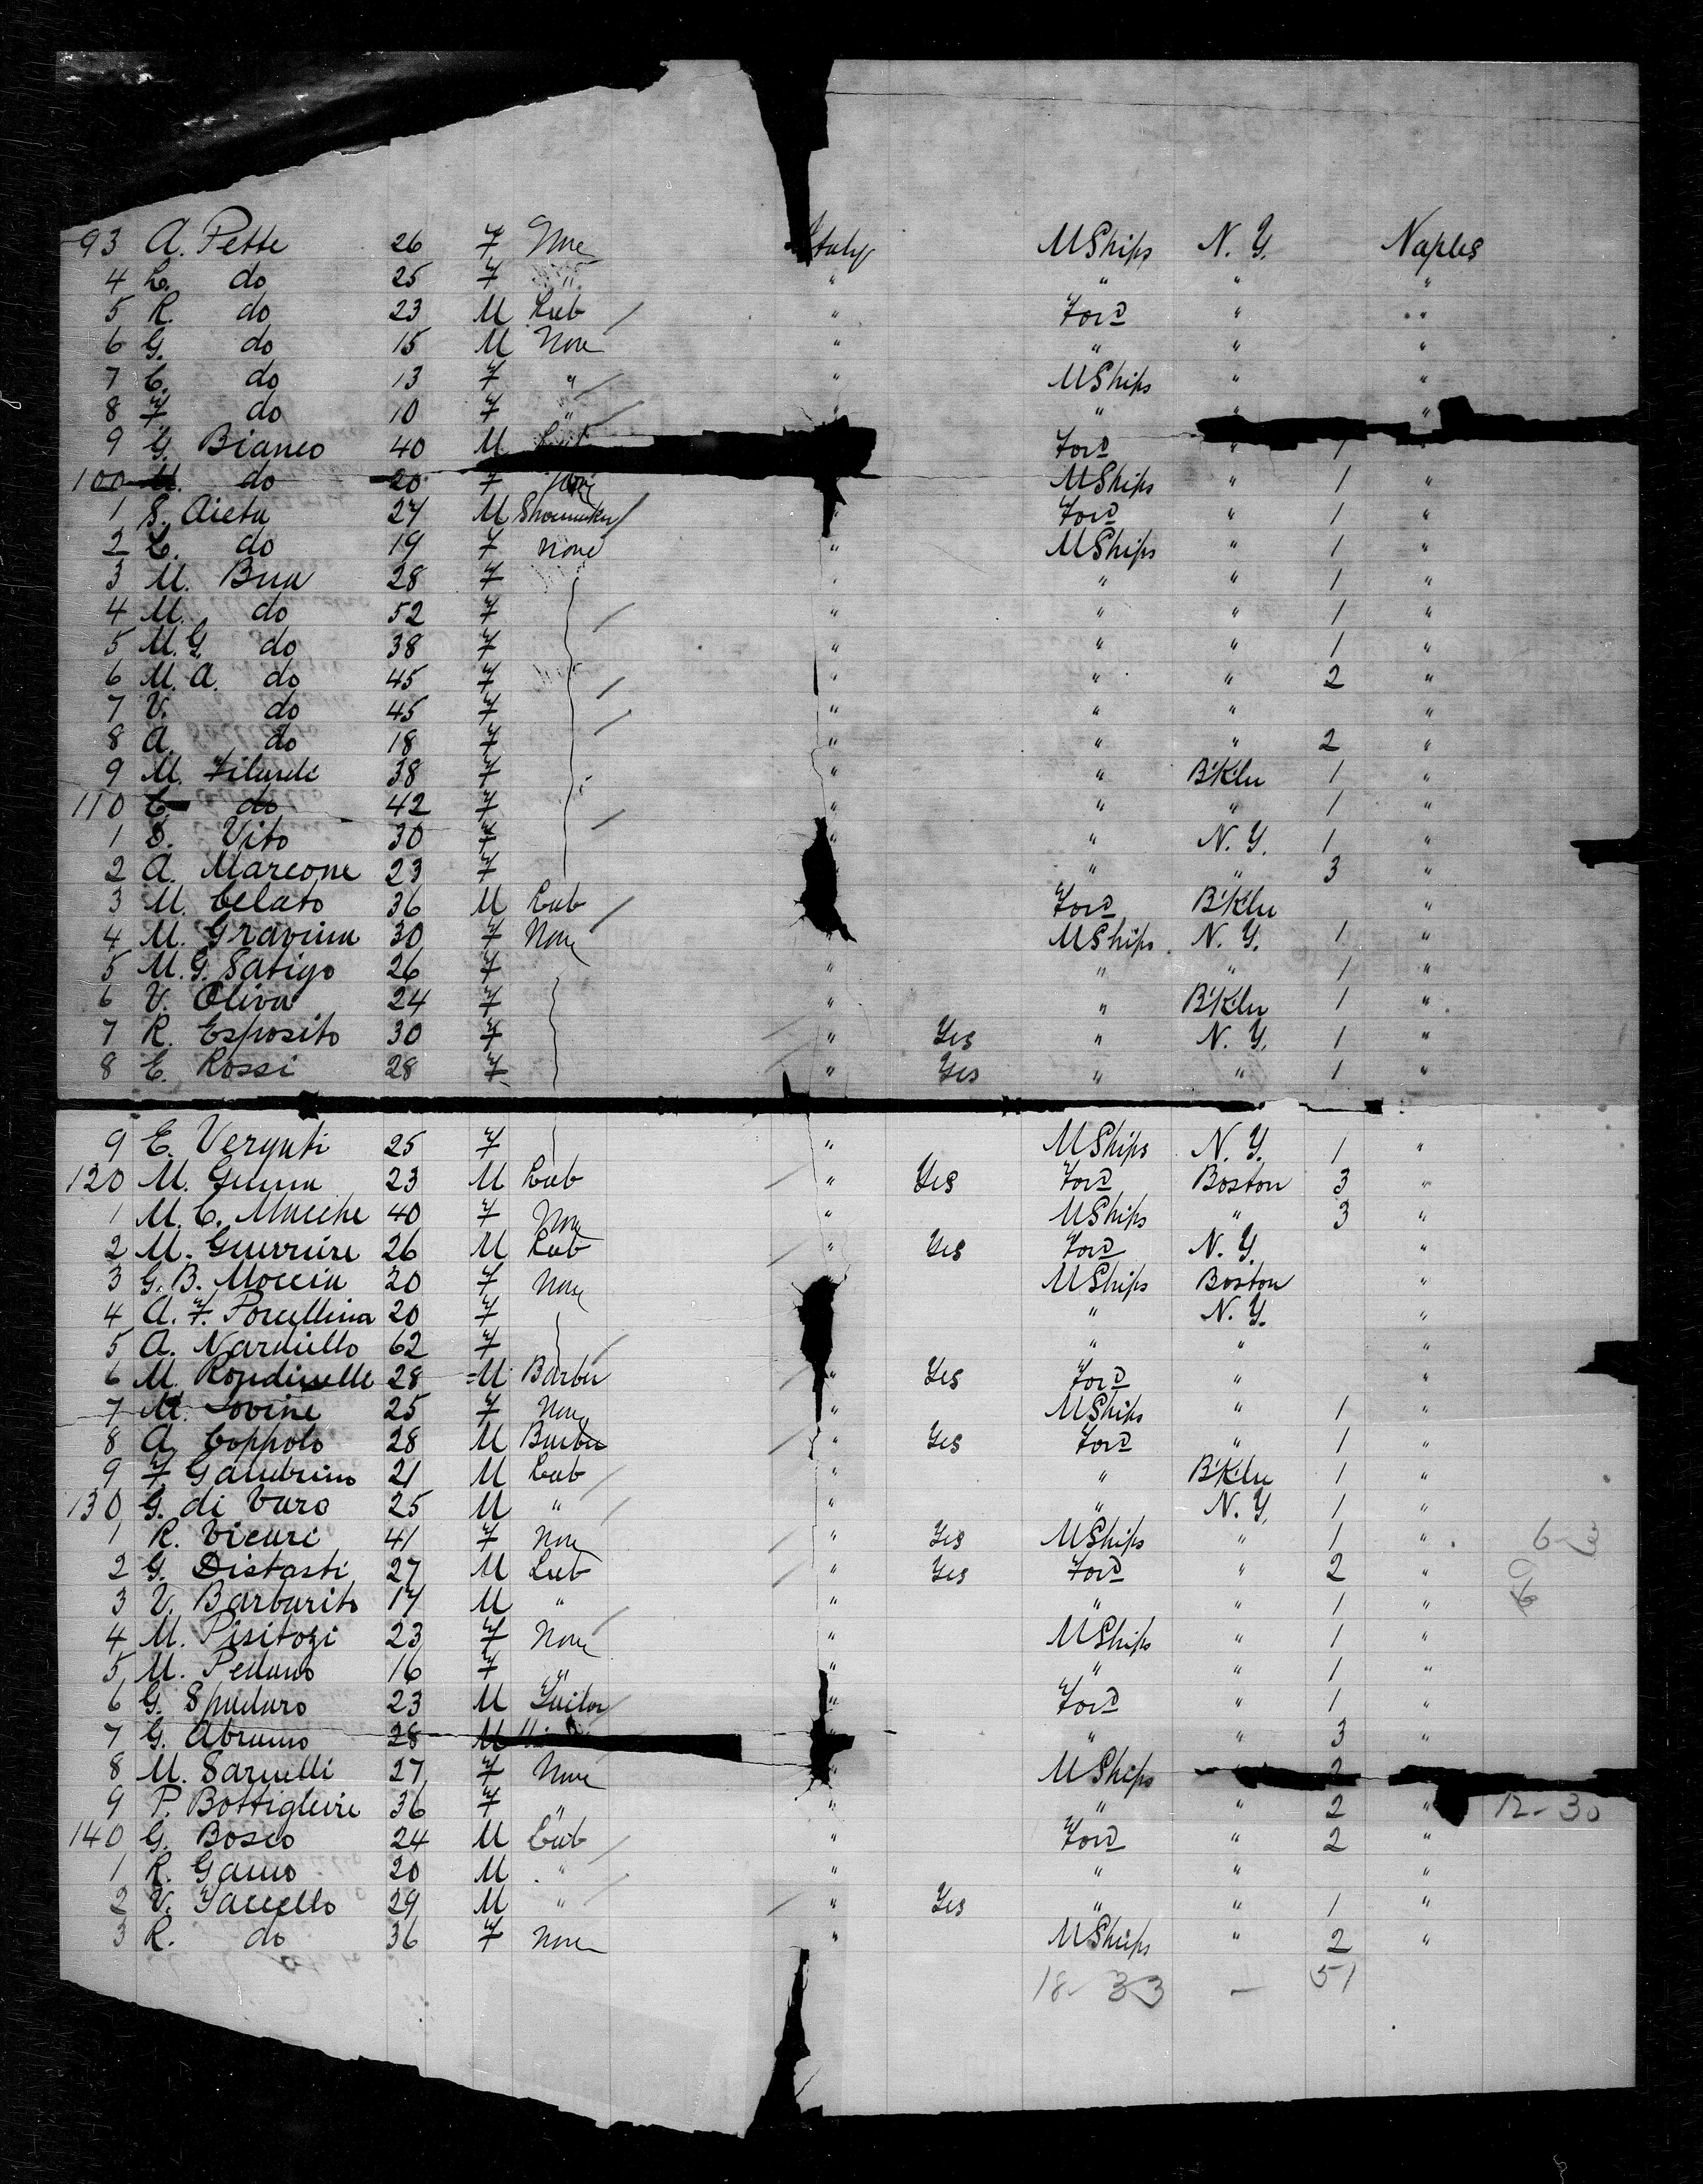 93 A. Pette 26 F None Italy MShips N.Y. Naples
4 L. do 25 F " " " " "
5 R. do 23 M Lab " Ford " "
6 G. do 15 M None " " " "
7 C. do 13 F " " MShips " "
8 F. do 10 F " " " " "
9 G. Bianco 40 M Lab Ford " 1 "
100 M. do 20 F None MShips " 1 "
1 S. Aieta 27 M Shoemaker Ford " 1 "
2 C. do 19 F None " MShips " 1 "
3 M. Bua 28 F " " " 1 "
4 M. do 52 F " " " 1 "
5 M.G. do 38 F " " " 1 "
6 M.A. do 45 F " " " 2 "
7 V. do 45 F " " " "
8 A. do 18 F " " " 2 "
9 M. Filardi 38 F " " B'Kln 1 "
110 C. do 42 F " " " 1 "
1 S. Vito 30 F " " N.Y. 1 "
2 A. Marcone 23 F " " 3 "
3 M. Celato 36 M Lab Ford B'Kln "
4 M. Gravina 30 F None " MShips N.Y. 1 "
5 M.G. Satigo 26 F " " " 1 "
6 V. Oliva 24 F " " B'Kln 1 "
7 R. Esposito 30 F " Yes " N.Y. 1 "
8 C. Rossi 28 F " Yes " " 1 "
9 E. Vergati 25 F " MShips N.Y. 1 "
120 M. 23 M Lab " Yes Ford Boston 3 "
1 M.C. 40 F None " MShips " 3 "
2 M. Guerriere 26 M Lab " Yes Ford N.Y. "
3 G.B. Moccia 20 F None MShips Boston "
4 A.F. Porcellina 20 F " N.Y. "
5 A. Nardiello 62 F " " "
6 M. Rondinelle 28 M Barber " Yes Ford " "
7 M. Iovine 25 F None " MShips " 1 "
8 A. Coppolo 28 M Barber " Yes Ford " 1 "
9 F. Gaudrino 21 M Lab " " B'Kln 1 "
130 G. di Varo 25 M " " " N.Y. 1 "
1 R. Vicari 41 F None " Yes MShips " 1 " 6-3
2 G. Distasti 27 M Lab " Yes Ford " 2 "
3 V. Barbarito 17 M " " " " 1 "
4 M. Pisitozi 23 F None " MShips " 1 "
5 M. Pedano 16 F " " " " 1 "
6 G. Spadaro 23 M Tailor " Ford " 1 "
7 G. Abramo 28 M " " 3 "
8 M. Sarnelli 27 F None MShips " 2
9 P. Bottiglieri 36 F " " " " 2 " 12-30
140 G. Bosco 24 M Lab " Ford " 2 "
1 R. Gamo 20 M " " " " "
2 V. Iaccello 29 M " " Yes " " 1 "
3 R. do 36 F None " MShips " 2 "
18-33 - 51